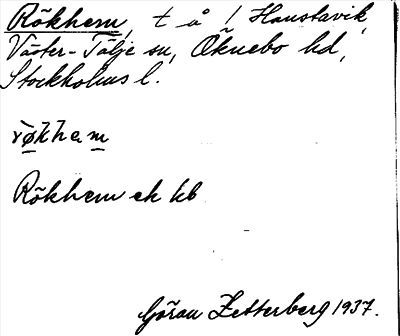 Rökhem, t å 1 Hanstavik,
Väster-Tälje sn, Öknebo hd,
Stockholms l.
røkhem
Rökhem ek kb
Göran Zetterberg 1937.